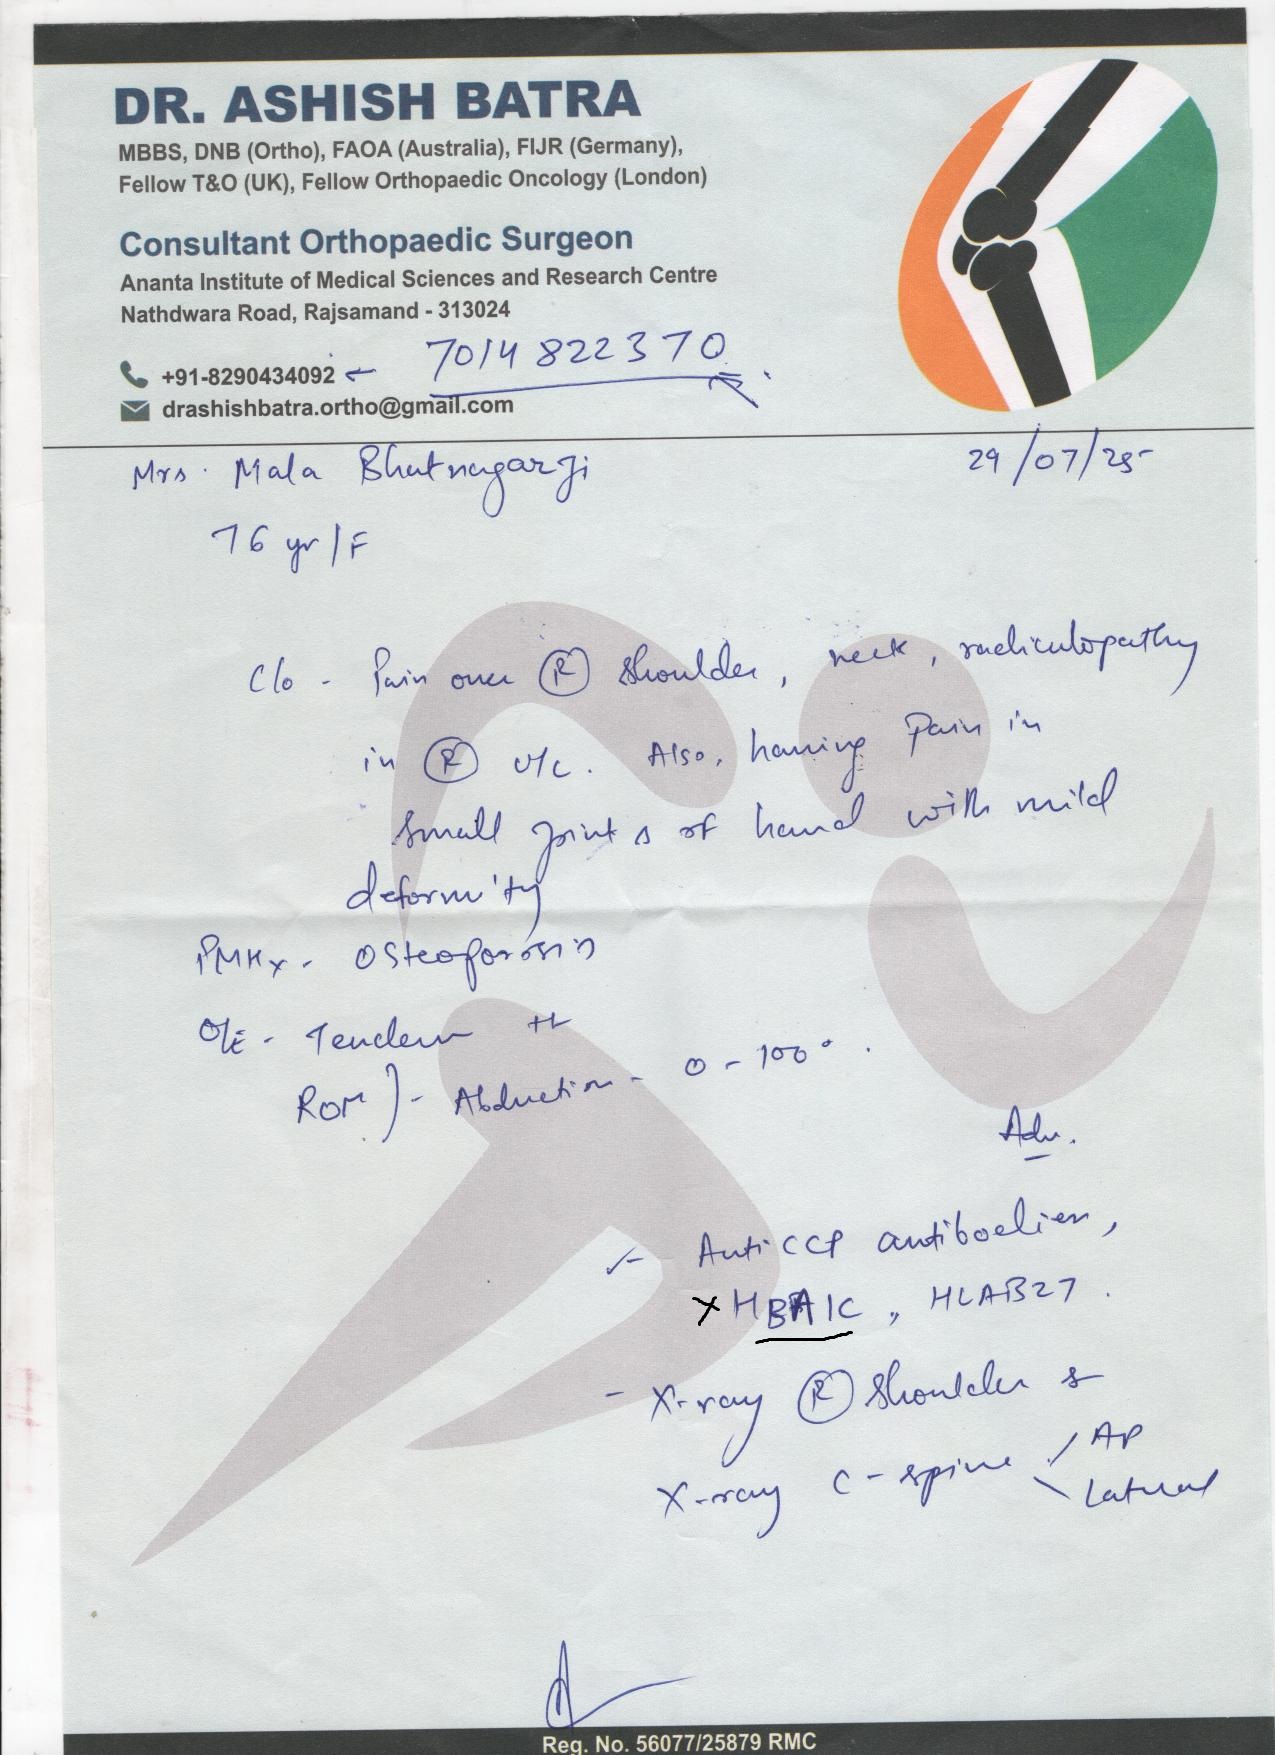 DR. ASHISH BATRA
MBBS, DNB (Ortho), FAOA (Australia), FIJR (Germany),
Fellow T&O (UK), Fellow Orthopaedic Oncology (London)
Consultant Orthopaedic Surgeon
Ananta Institute of Medical Sciences and Research Centre
Nathdwara Road, Rajsamand - 313024
+91-8290434092 ← 7014822370
drashishbatra.ortho@gmail.com
Mrs. Mala Bhatnagar Ji 29/07/25
76 yr/F
C/o - Pain over (R) shoulder, neck, radiculopathy
in (R) U/L. Also, having Pain in
small joints of hand with mild
deformity
PMHx - Osteoporosis
O/E - Tender
ROM) - Abduction - 0 - 100°.
Adv.
- Anti CCP antibodies,
X HBA1C, HLAB27.
- X-ray (R) shoulder &
X-ray C-spine / AP
\ Lateral
Reg. No. 56077/25879 RMC